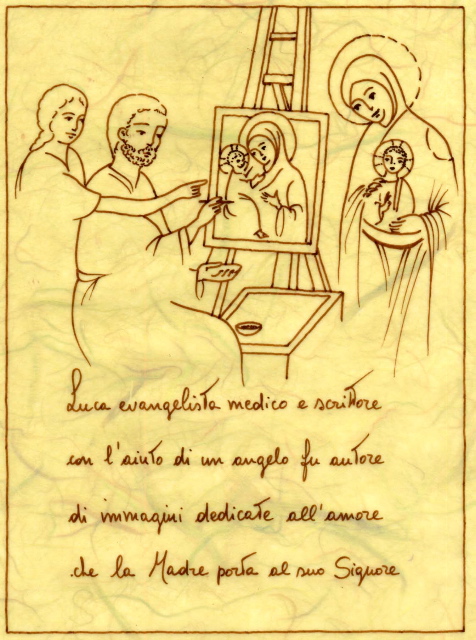 Luca evangelista medico e scrittore
con l'aiuto di un angelo fu autore
di immagini dedicate all'amore
che la Madre porta al suo Signore